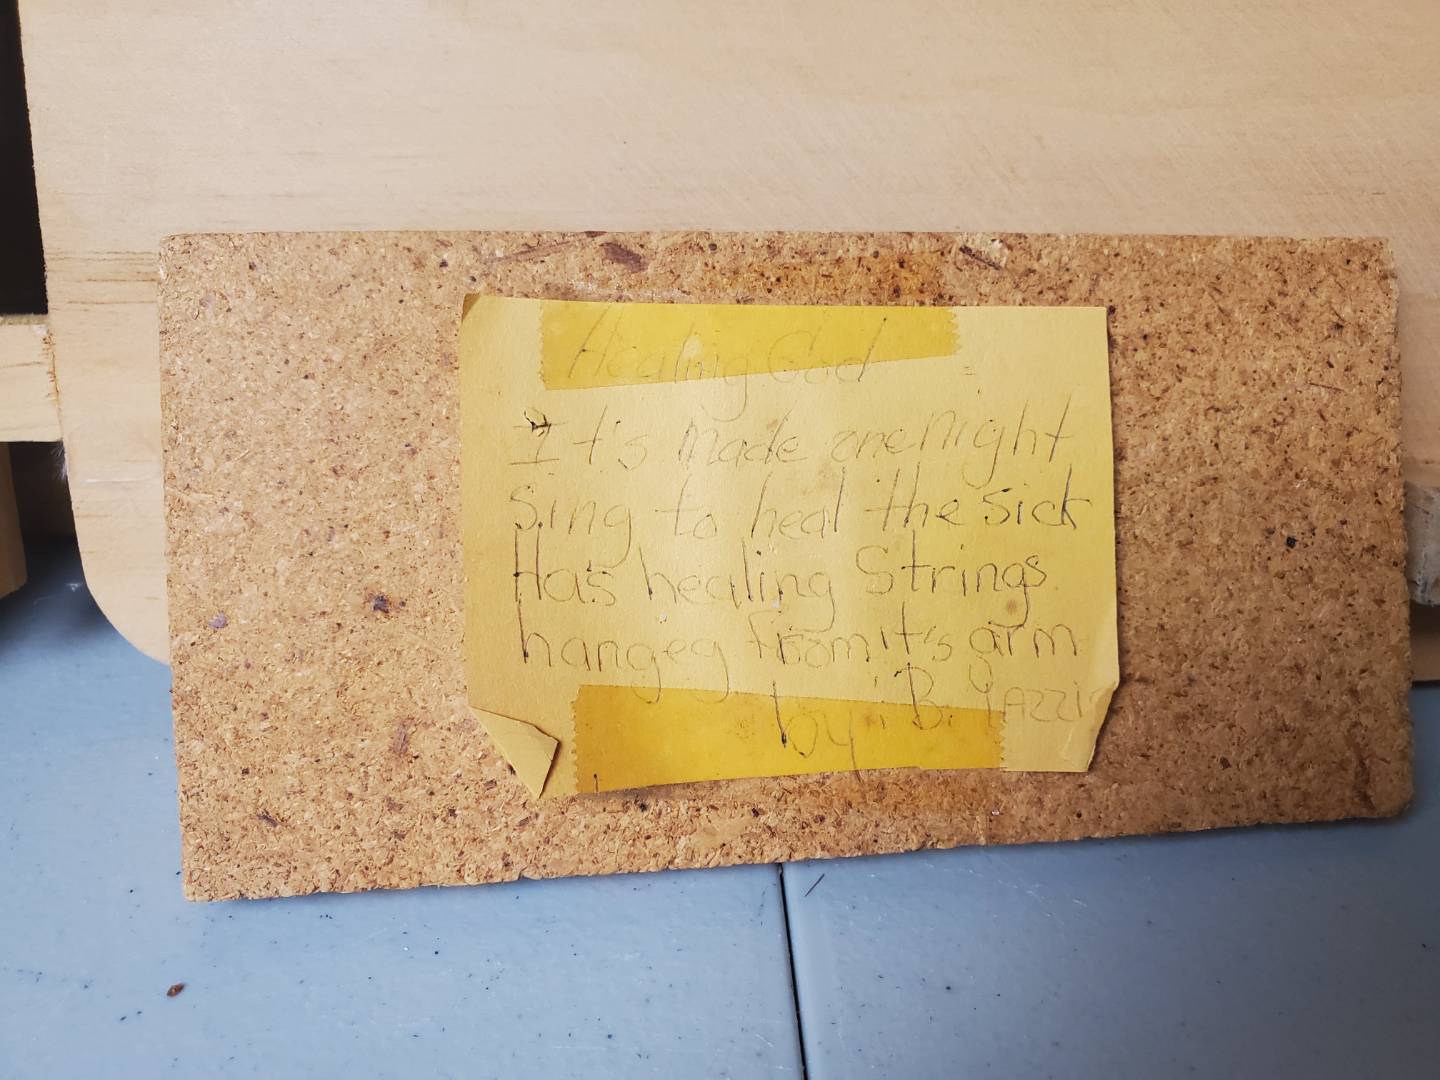 Healing God
It's Made one Night
Sing to heal the sick
Has healing Strings
hangeg from it's arm
by: B. Yazzie